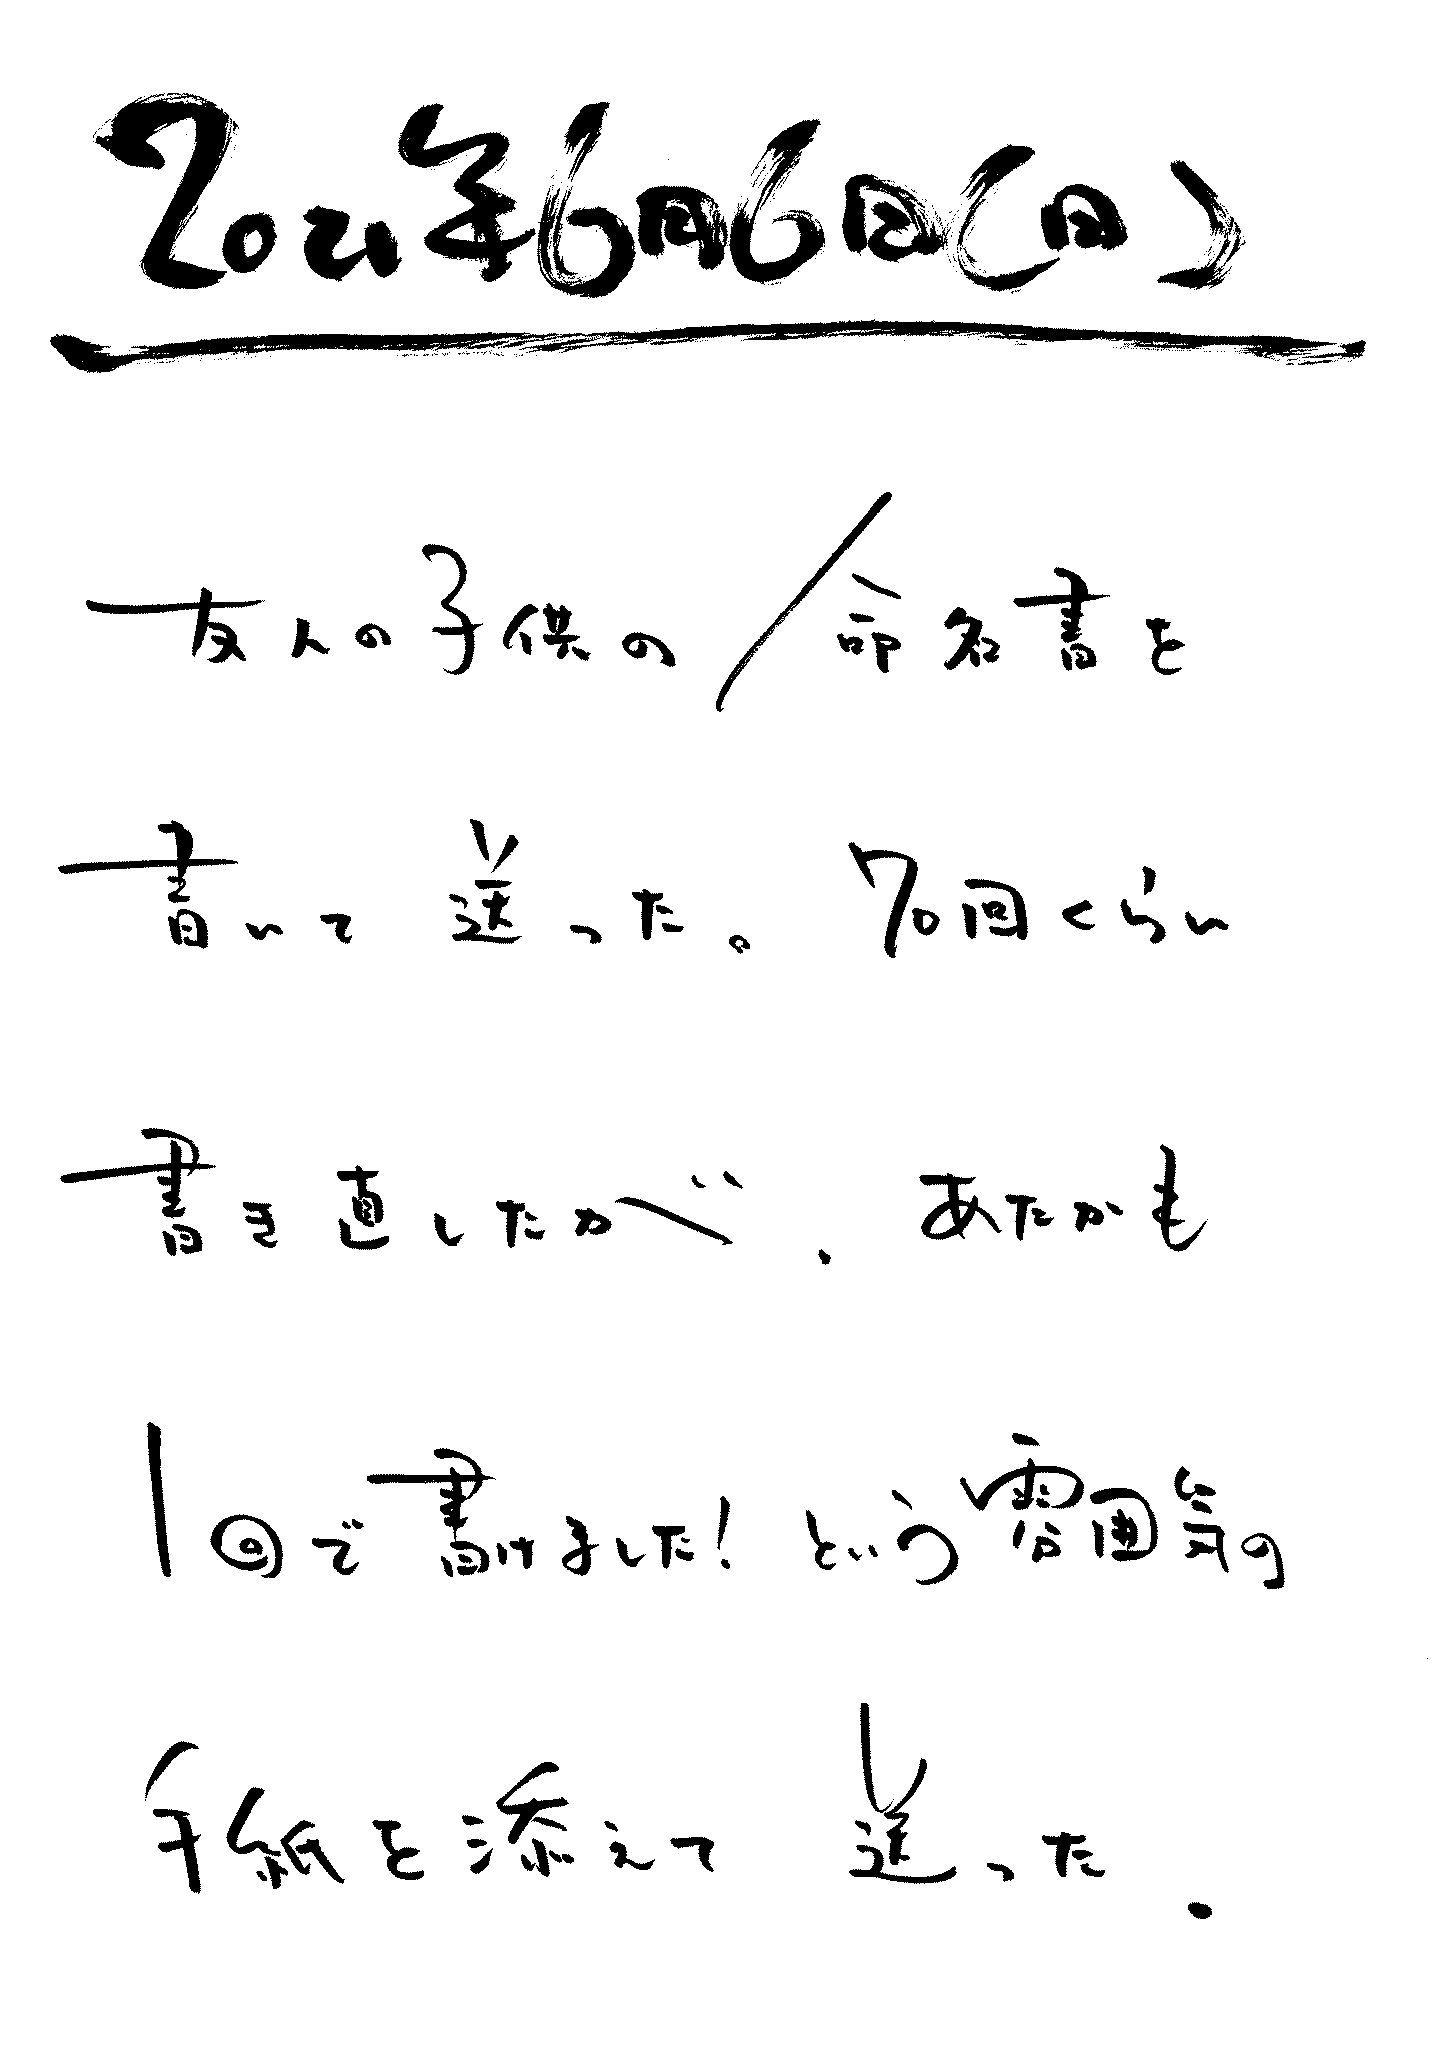 2021年6月6日(日)
友人の子供の命名書を
書いて送った。70回くらい
書き直したが、あたかも
1回で書けました!という雰囲気の
手紙を添えて送った.